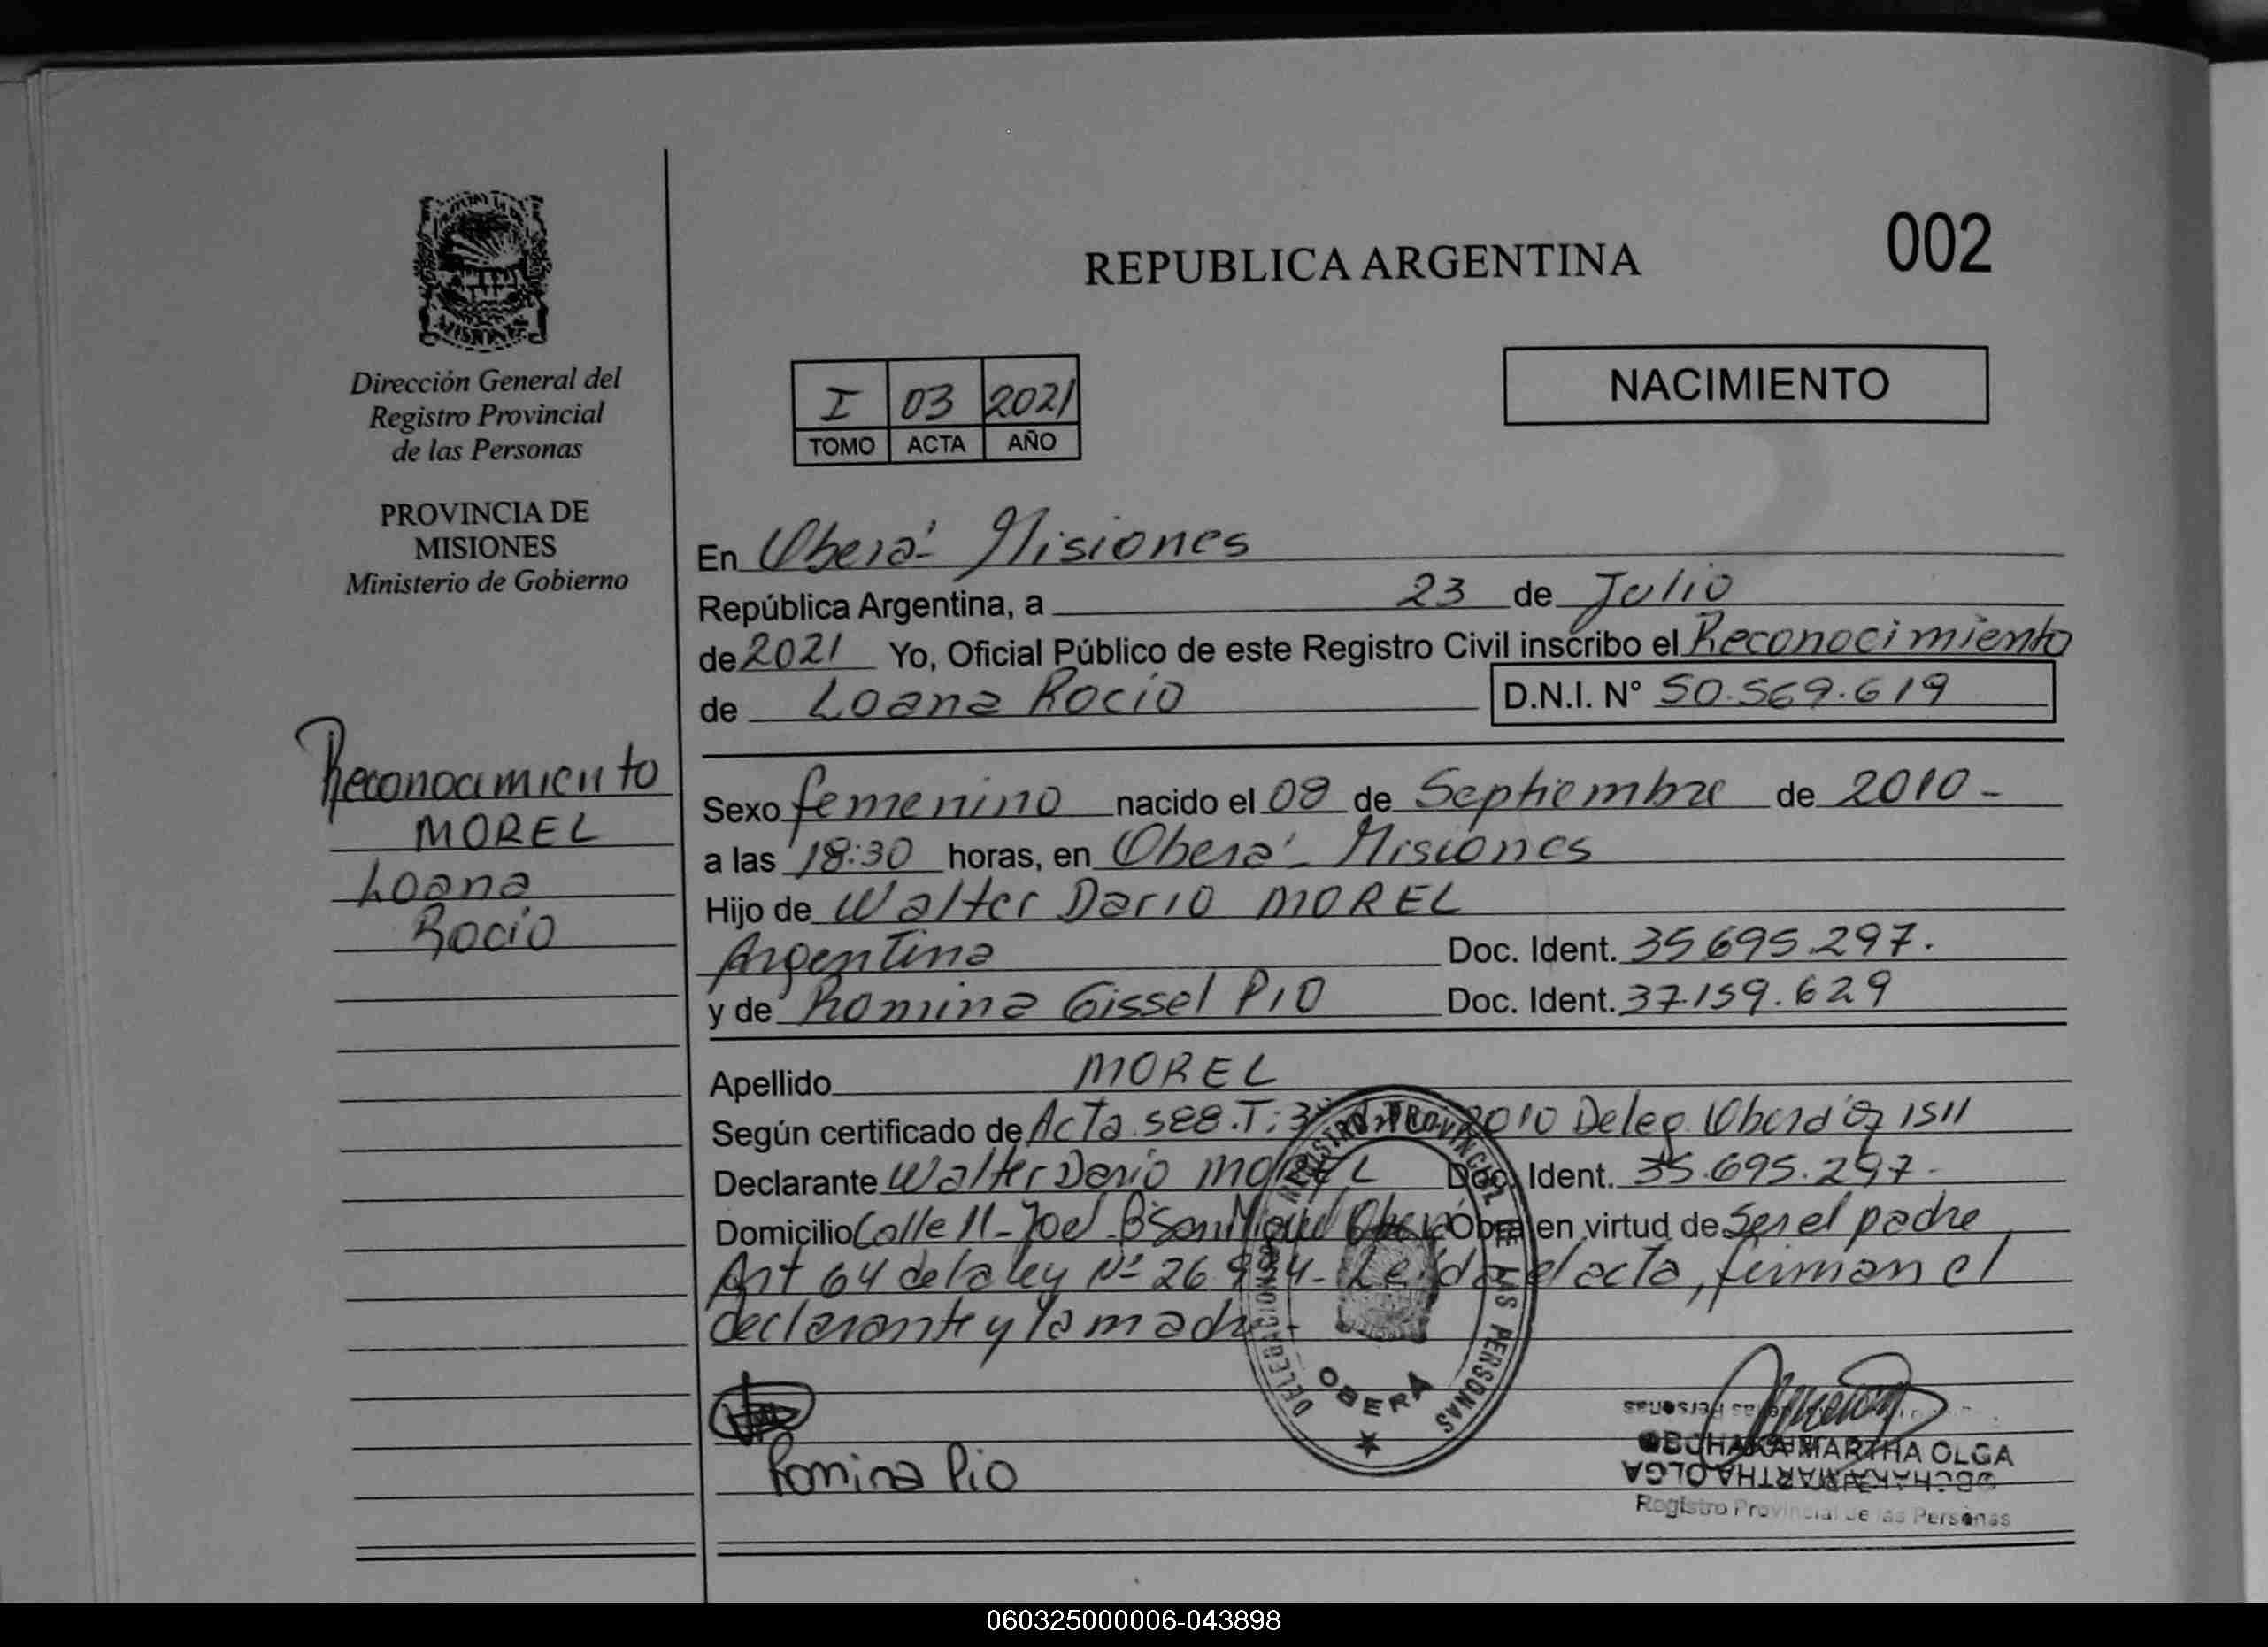 REPUBLICA ARGENTINA
002
NACIMIENTO
I 03 2021
TOMO ACTA AÑO
MISIONES
Dirección General del
Registro Provincial
de las Personas
PROVINCIA DE
MISIONES
Ministerio de Gobierno
Reconocimiento
MOREL
Loana
Rocio
En Oberá - Misiones
República Argentina, a 23 de Julio
de 2021 Yo, Oficial Público de este Registro Civil inscribo el Reconocimiento
de Loana Rocio D.N.I. N° 50.569.619
Sexo femenino nacido el 09 de Septiembre de 2010 -
a las 18:30 horas, en Oberá - Misiones
Hijo de Walter Dario MOREL
Argentina Doc. Ident. 35695.297.
y de Romina Gissel PIO Doc. Ident. 37.159.629
Apellido MOREL
Según certificado de Acta 588.T: 2010 Deleg. Oberá 1511
Declarante Walter Dario MOREL Doc. Ident. 35.695.297-
Domicilio Calle 11 - Joel Bº San Miguel Oberá Obra en virtud de Ser el padre
Art 64 de la ley Nº 26.994 - Leida el acta, firman el
declarante y la madre -
REGISTRO PROVINCIAL DE LAS PERSONAS
DELEGACION
OBERA
Romina Pio
MARTHA OLGA
Registro Provincial de las Personas
060325000006-043898